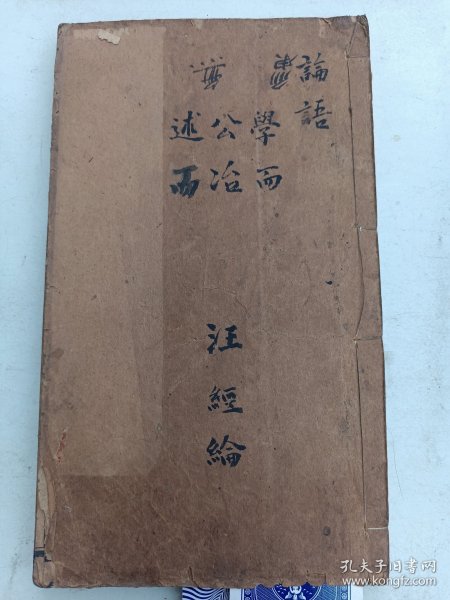 論語
學而
公冶
述而
汪經綸
孔夫子旧书网
www.kongfz.com